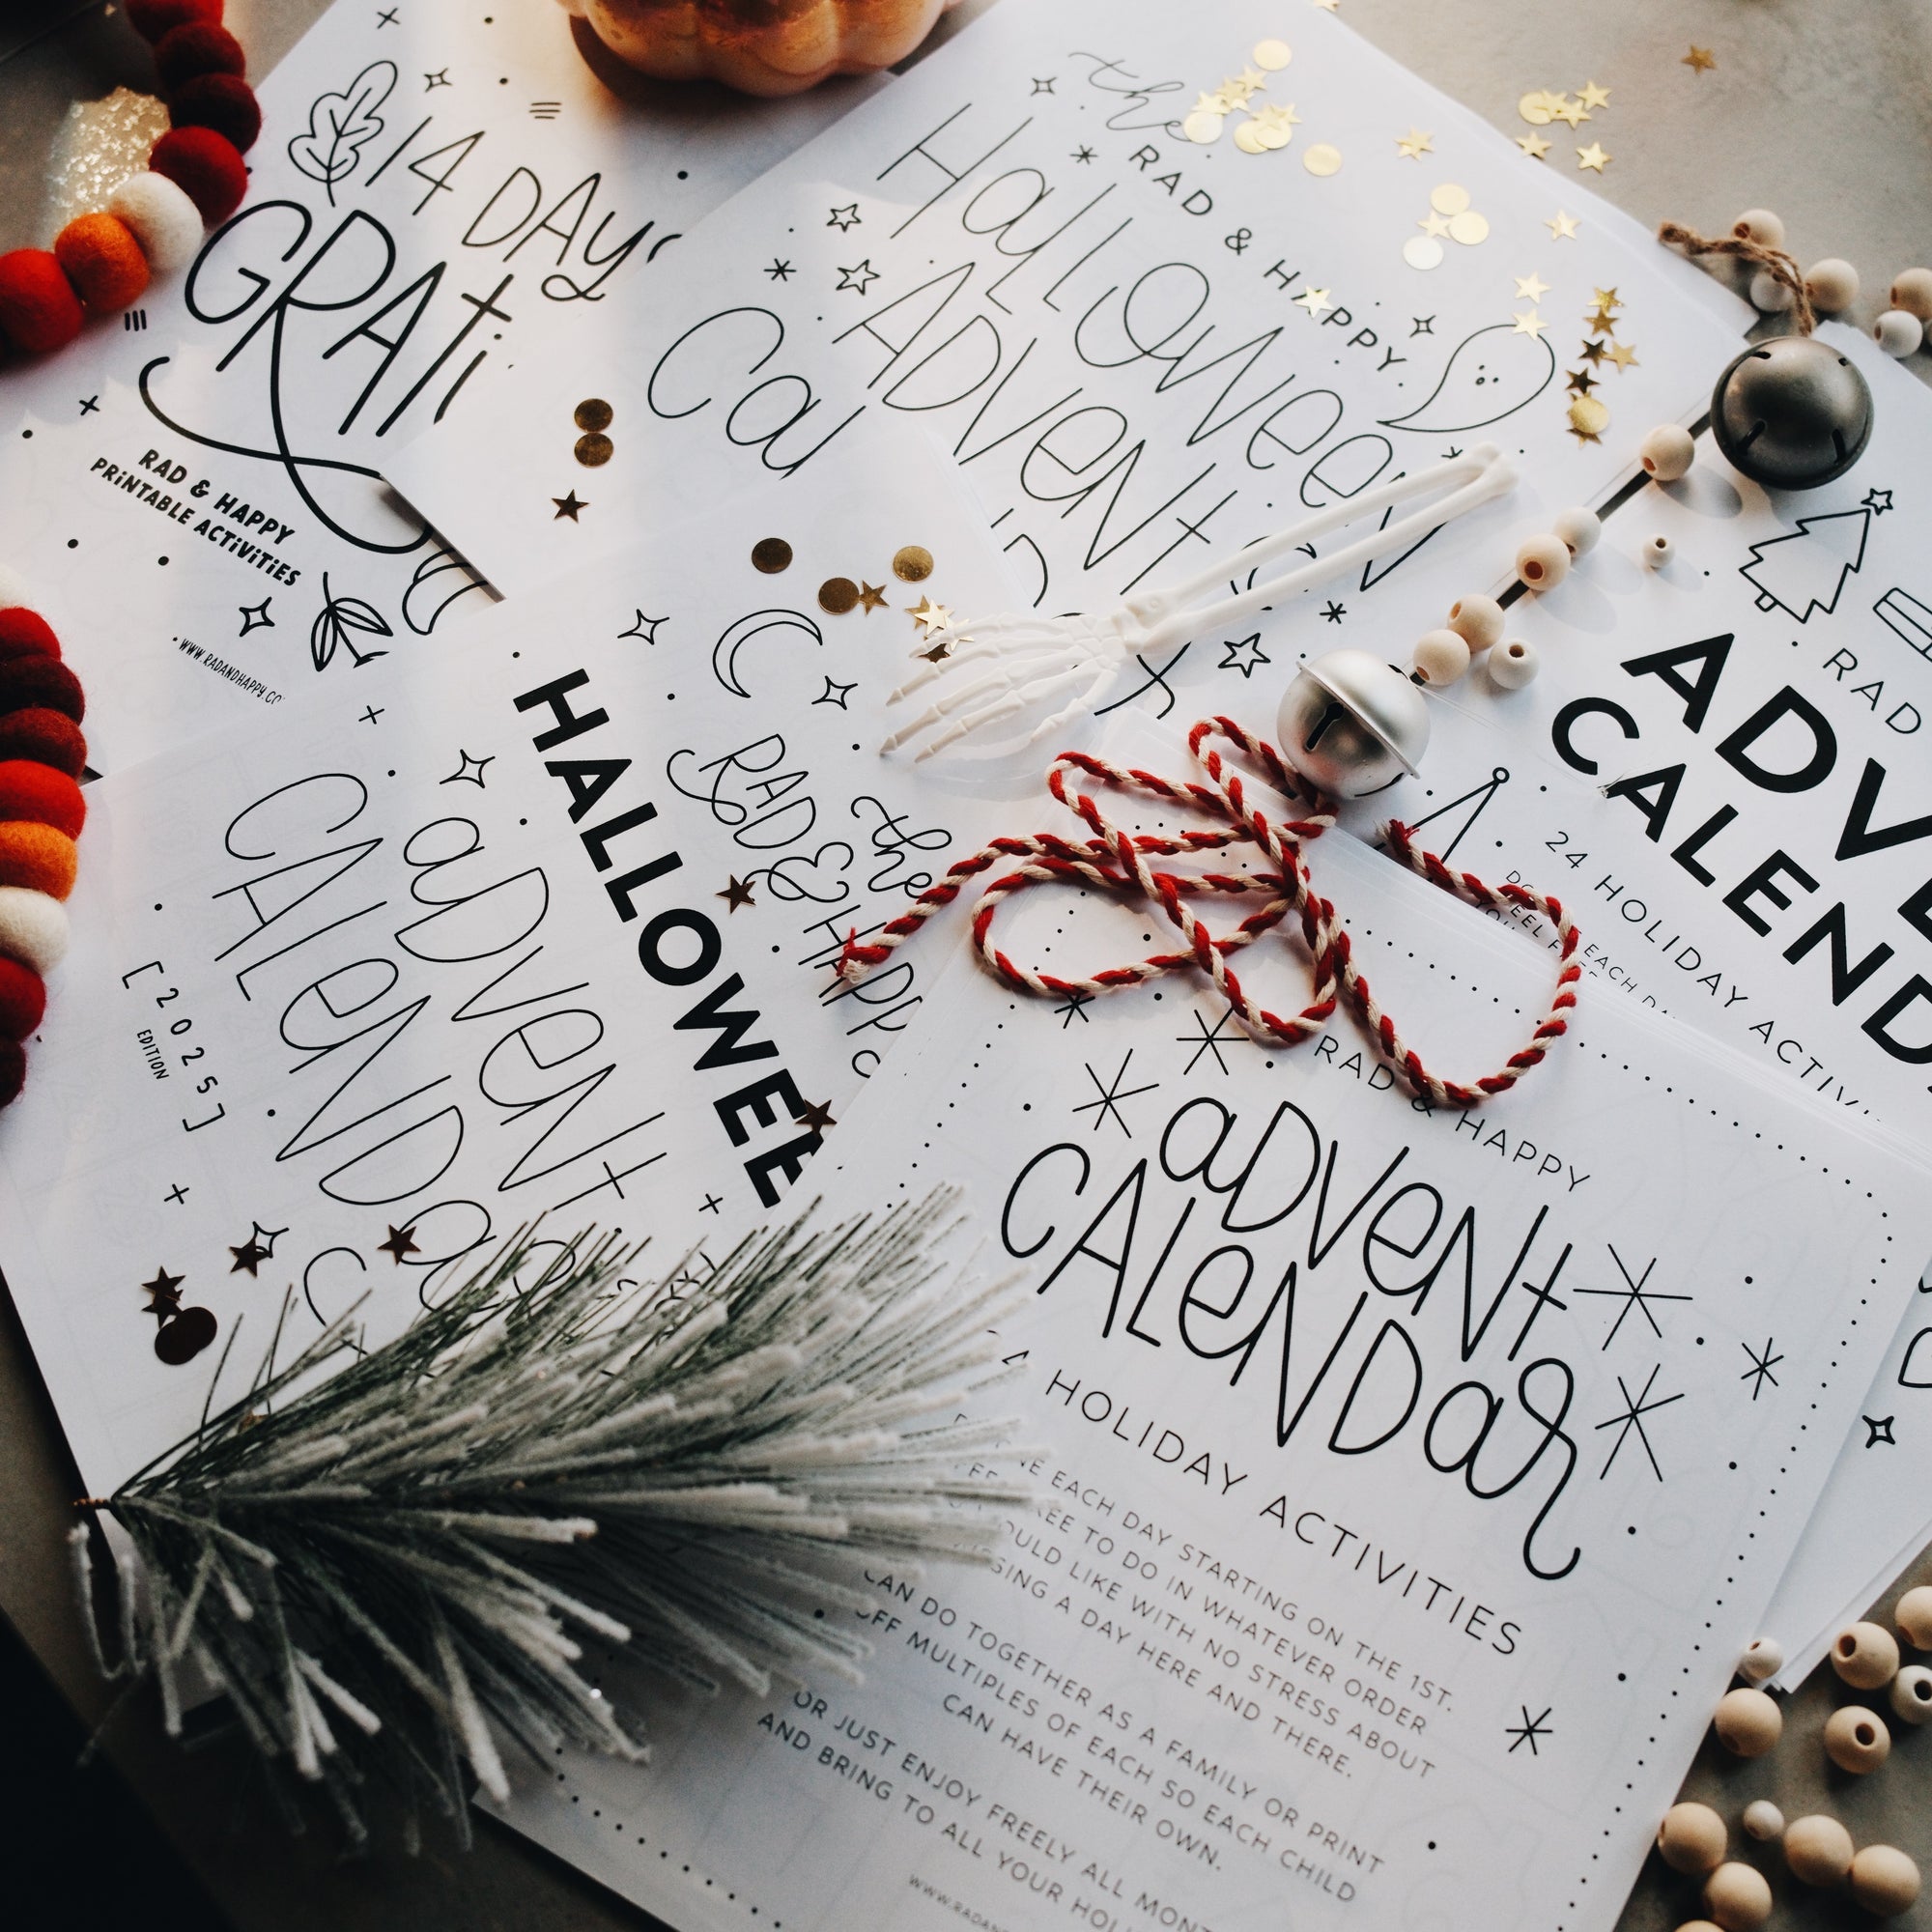 14 DAYS
GRATi
RAD & HAPPY
PRiNTABLE ACTiViTiES
the
RAD & HAPPY
Halloween
ADVENT
Cal
RAD
ADVE
CALEND
24 HOLIDAY ACTIVI
EACH
the
RAD & HAPPY
HALLOWEE
aDVeNt
CALeNDa
[2025]
EDITION
RAD & HAPPY
aDVeNt
CALeNDar
HOLIDAY ACTIVITIES
EACH DAY STARTING ON THE 1ST.
TO DO IN WHATEVER ORDER
LIKE WITH NO STRESS ABOUT
A DAY HERE AND THERE.
CAN DO TOGETHER AS A FAMILY OR PRINT
OFF MULTIPLES OF EACH SO EACH CHILD
CAN HAVE THEIR OWN.
OR JUST ENJOY FREELY ALL MONT
AND BRING TO ALL YOUR HOLI